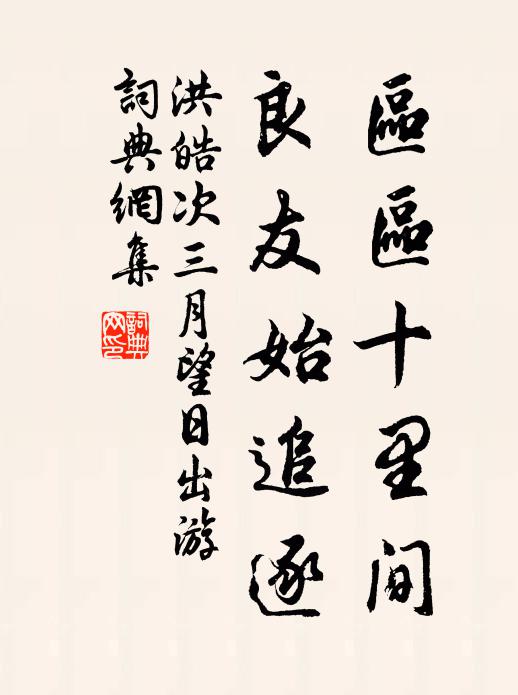 區區十里間
良友始追逐
洪皓次三月望日出游
詞典網集
詞典網印